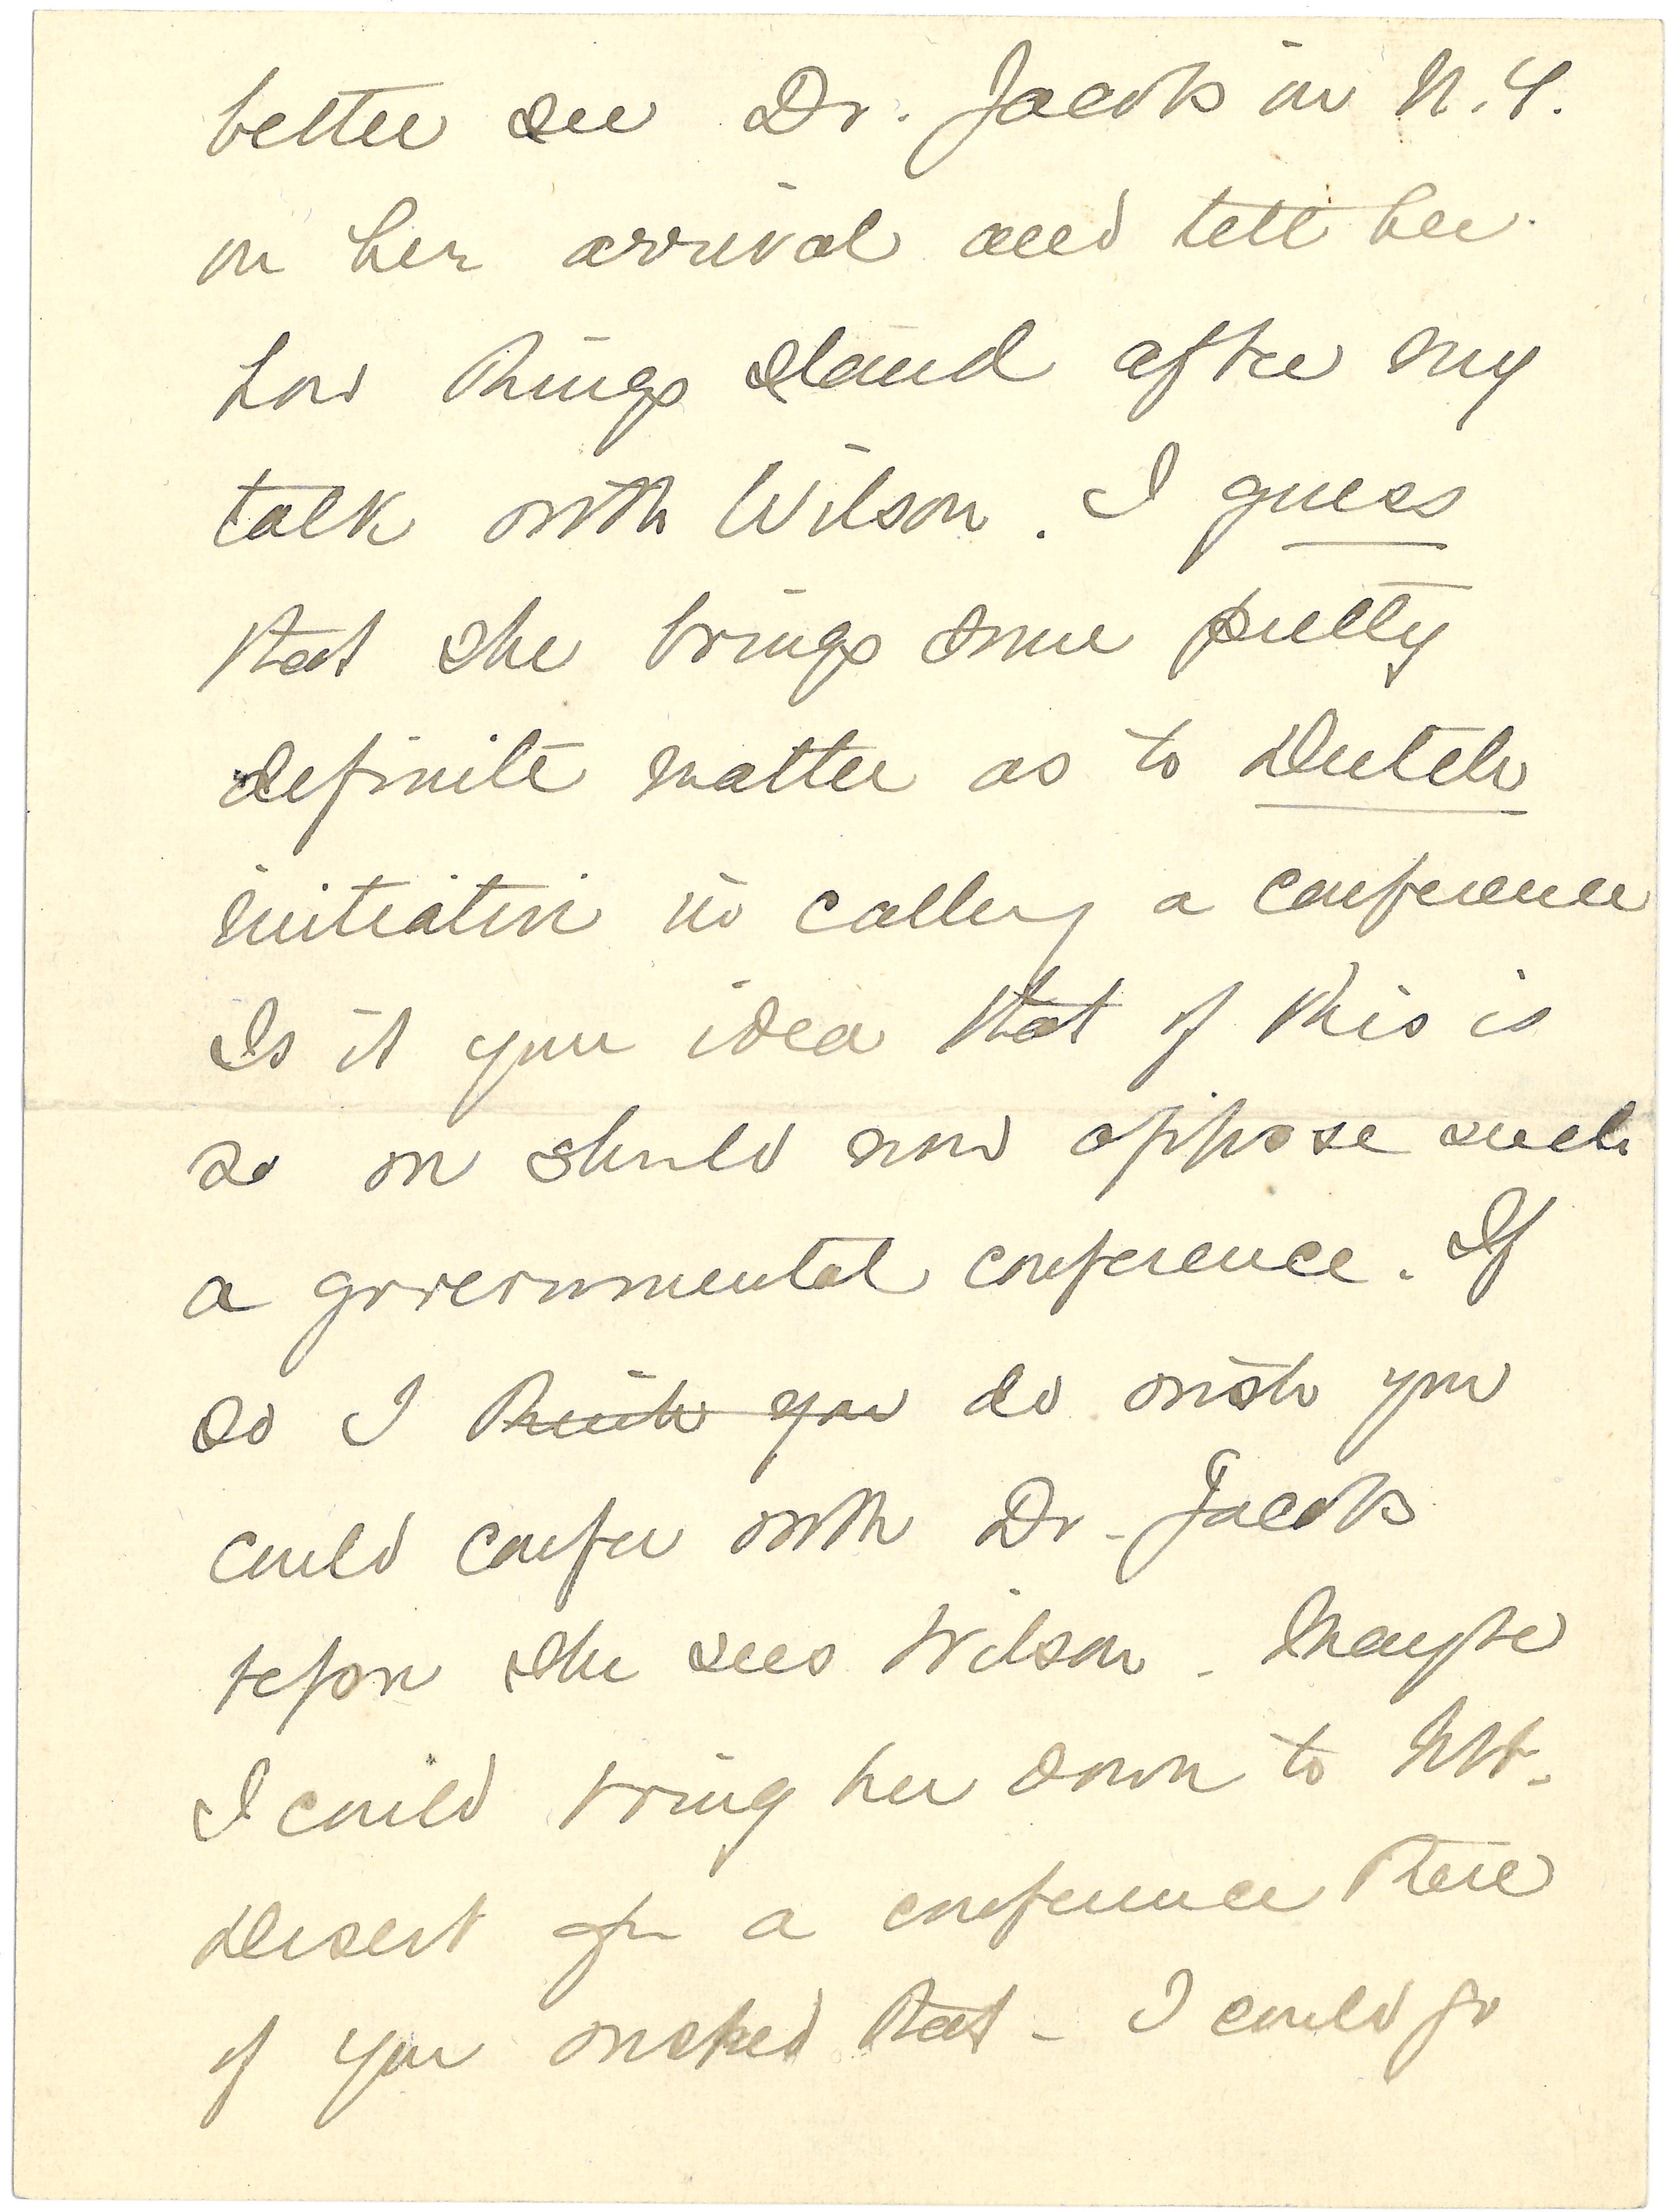 better see Dr. Jacobs in N.Y.
on her arrival and tell her
how things stand after my
talk with Wilson. I guess
that she brings some pretty
definite matter as to Dutch
initiative in calling a conference
Is it your idea that if this is
so we should now oppose such
a governmental conference. If
so I think you do wish you
could confer with Dr. Jacobs
before she sees Wilson - Maybe
I could bring her down to Mt.
Desert for a conference there
if you wished that - I could go